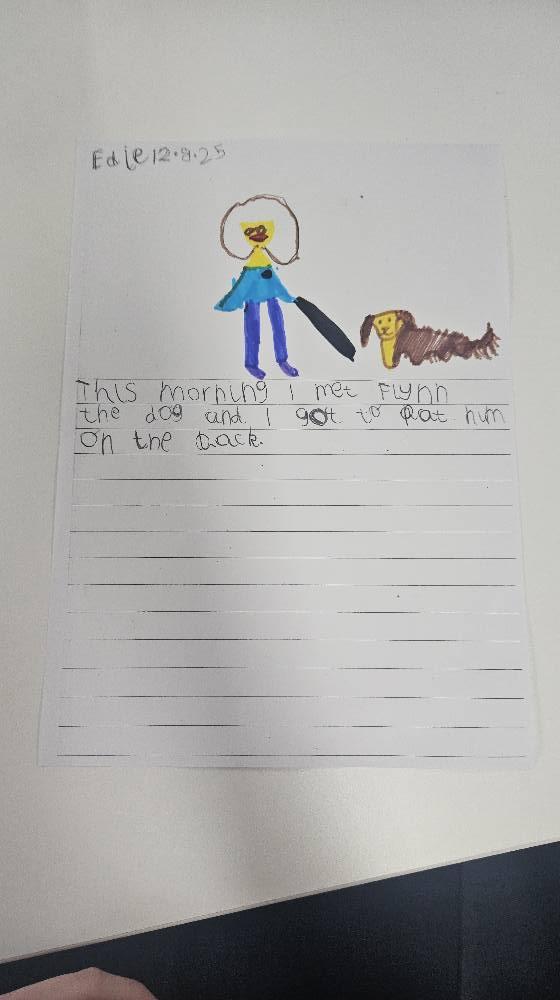 Edie 12.8.25
This morning I met Flynn
the dog and I got to pat him
on the back.